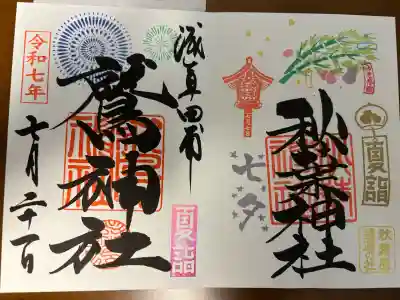 秋葉神社
七夕
夏詣
七月七日
浅草田甫
鷲神社
令和七年
七月二十一日
夏詣